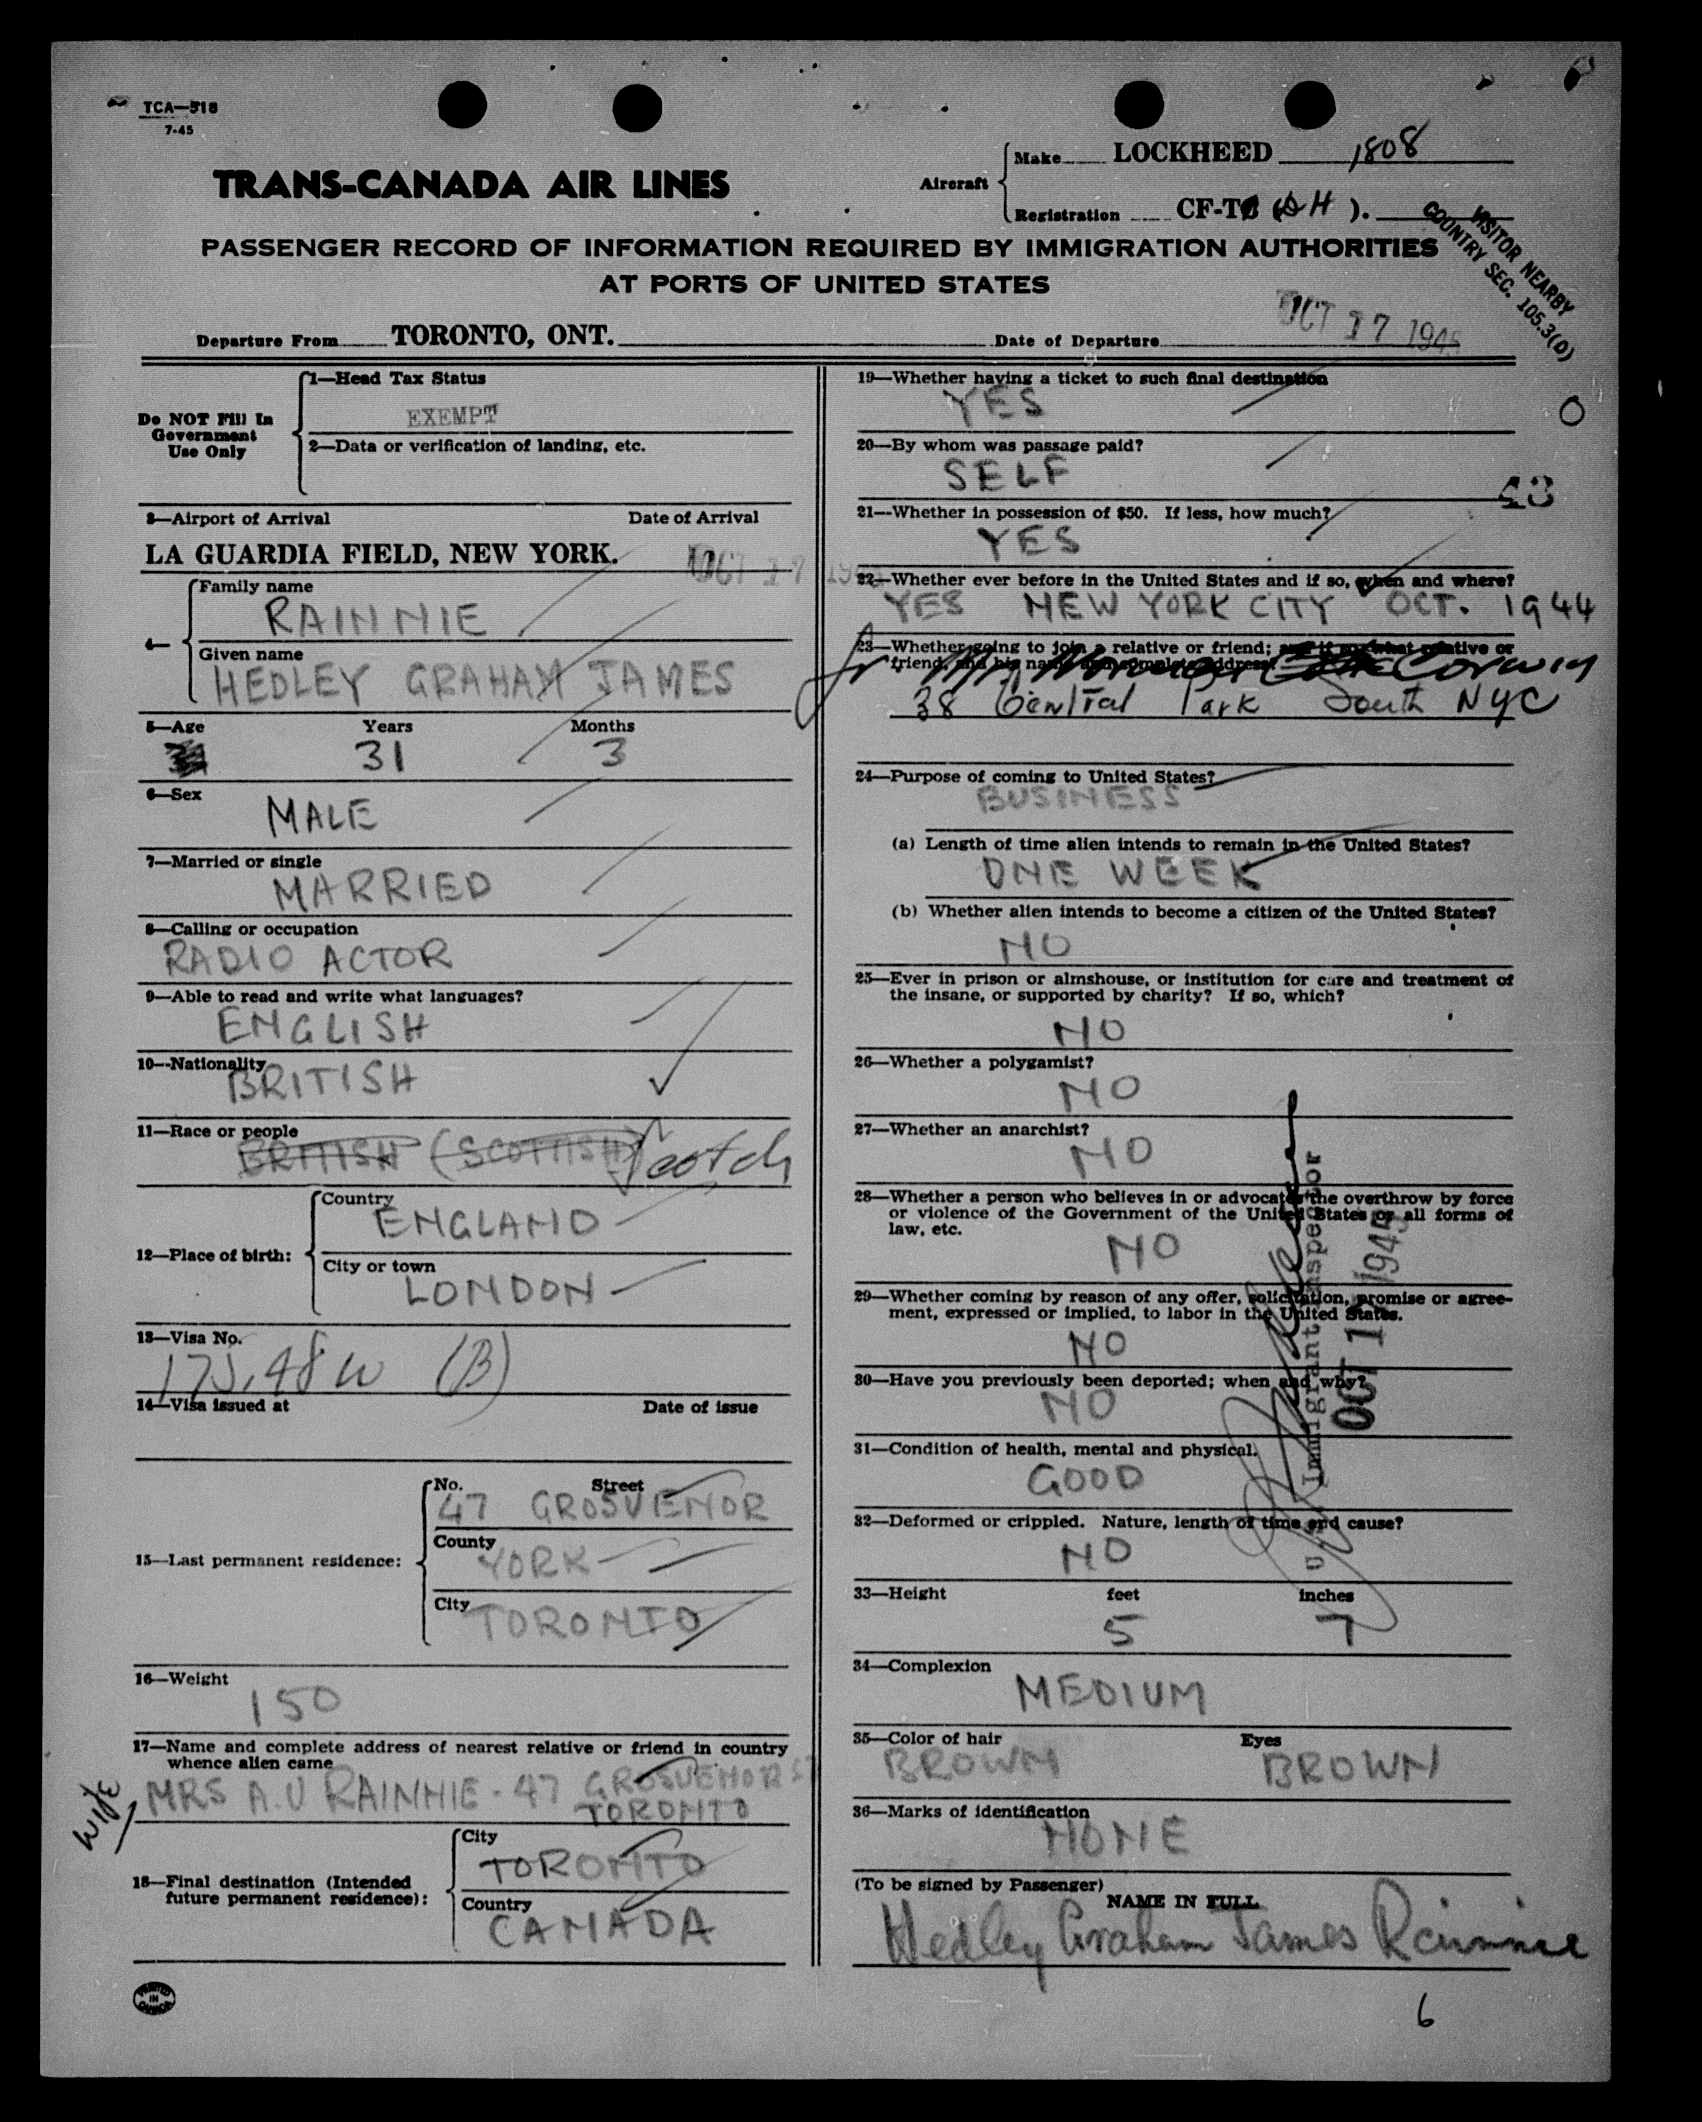 TCA—518
7-45
TRANS-CANADA AIR LINES
Aircraft
Make LOCKHEED 1808
Registration CF-TC (DH).
VISITOR NEARBY
COUNTRY SEC. 105.3(D)
PASSENGER RECORD OF INFORMATION REQUIRED BY IMMIGRATION AUTHORITIES
AT PORTS OF UNITED STATES
Departure From TORONTO, ONT. Date of Departure OCT 17 1945
Do NOT Fill In
Government
Use Only
1—Head Tax Status
EXEMPT
2—Data or verification of landing, etc.
3—Airport of Arrival Date of Arrival
LA GUARDIA FIELD, NEW YORK. OCT 17
4—
Family name
RAINNIE
Given name
HEDLEY GRAHAM JAMES
5—Age Years Months
31 3
6—Sex
MALE
7—Married or single
MARRIED
8—Calling or occupation
RADIO ACTOR
9—Able to read and write what languages?
ENGLISH
10—Nationality
BRITISH
11—Race or people
BRITISH (SCOTTISH) Scotch
12—Place of birth:
Country
ENGLAND
City or town
LONDON
13—Visa No.
175.48 W (B)
14—Visa issued at Date of issue
15—Last permanent residence:
No. Street
47 GROSVENOR
County
YORK
City
TORONTO
16—Weight
150
17—Name and complete address of nearest relative or friend in country
whence alien came
MRS A.V RAINNIE - 47 GROSVENOR ST
TORONTO
WIFE
18—Final destination (Intended
future permanent residence):
City
TORONTO
Country
CANADA
PRINTED
IN
CANADA
19—Whether having a ticket to such final destination
YES
O
20—By whom was passage paid?
SELF
43
21—Whether in possession of $50. If less, how much?
YES
22—Whether ever before in the United States and if so, when and where?
YES NEW YORK CITY OCT. 1944
23—Whether going to join a relative or friend; and if so, what relative or
friend, and his name and complete address.
fr Mr Norman Corwin
38 Central Park South NYC
24—Purpose of coming to United States?
BUSINESS
(a) Length of time alien intends to remain in the United States?
ONE WEEK
(b) Whether alien intends to become a citizen of the United States?
NO
25—Ever in prison or almshouse, or institution for care and treatment of
the insane, or supported by charity? If so, which?
NO
26—Whether a polygamist?
NO
27—Whether an anarchist?
NO
28—Whether a person who believes in or advocates the overthrow by force
or violence of the Government of the United States or all forms of
law, etc.
NO
29—Whether coming by reason of any offer, solicitation, promise or agree-
ment, expressed or implied, to labor in the United States.
NO
30—Have you previously been deported; when and why?
NO
U.S. Immigrant Inspector
OCT 17 1945
31—Condition of health, mental and physical.
GOOD
32—Deformed or crippled. Nature, length of time and cause?
NO
33—Height feet inches
5 7
34—Complexion
MEDIUM
35—Color of hair Eyes
BROWN BROWN
36—Marks of identification
NONE
(To be signed by Passenger)
NAME IN FULL
Hedley Graham James Rainnie
6